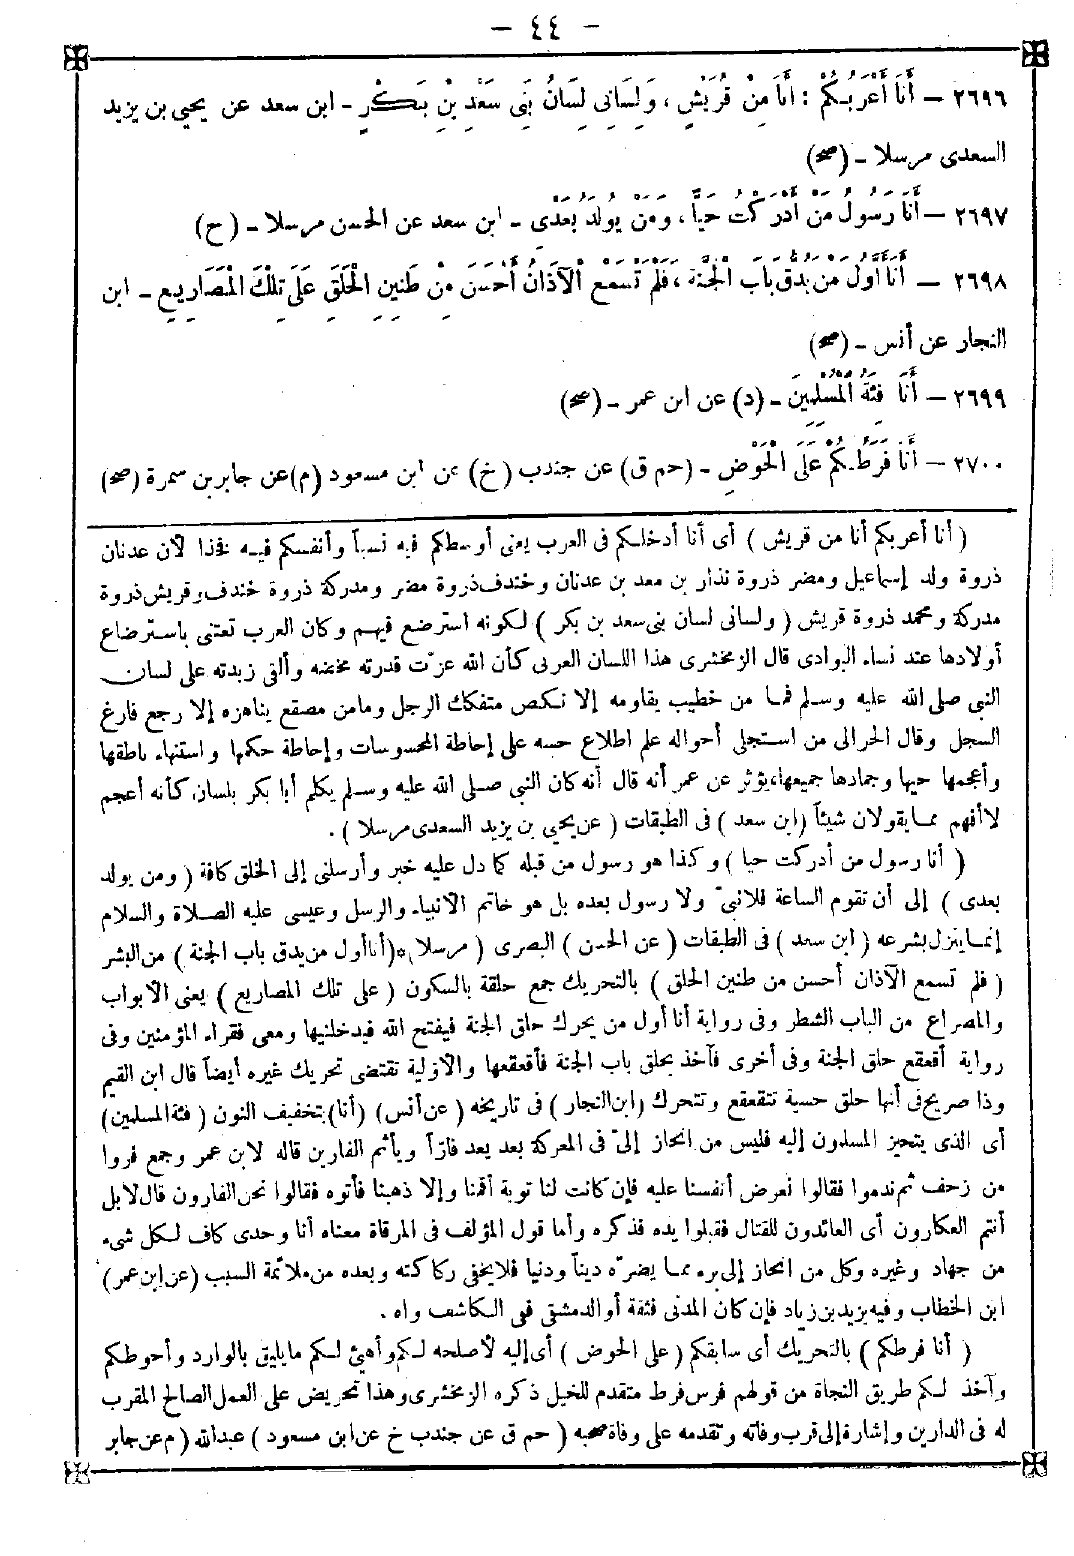 - ٤٤ -
٢٦٩٦ - أَنَا أَعْرَبُكُمْ : أَنَا مِنْ قُرَيْشٍ ، وَلِسَانِى لِسَانُ بَنِى سَعْدِ بْنِ بَكْرٍ - ابن سعد عن يحيى بن يزيد
السعدى مرسلا - (صح)
٢٦٩٧ - أَنَا رَسُولُ مَنْ أَدْرَكْتُ حَيًّا ، وَمَنْ يُولَدُ بَعْدِى - ابن سعد عن الحسن مرسلا - (ح)
٢٦٩٨ - أَنَا أَوَّلُ مَنْ يَدُقُّ بَابَ الْجَنَّةِ ، فَلَمْ تَسْمَعِ الْآذَانُ أَحْسَنَ مِنْ طَنِينِ الْحَلَقِ عَلَى تِلْكَ الْمَصَارِيعِ - ابن
النجار عن أنس - (صح)
٢٦٩٩ - أَنَا فِئَةُ الْمُسْلِمِينَ - (د) عن ابن عمر - (صح)
٢٧٠٠ - أَنَا فَرَطُكُمْ عَلَى الْحَوْضِ - (حم ق) عن جندب (خ) عن ابن مسعود (م) عن جابر بن سمرة (صح)
( أنا أعربكم أنا من قريش ) أى أنا أدخلكم فى العرب يعنى أوسطكم فيه نسباً وأنفسكم فيه فخذا لأن عدنان
ذروة ولد إسماعيل ومضر ذروة نذار بن معد بن عدنان وخندف ذروة مضر ومدركة ذروة خندف وقريش ذروة
مدركة ومحمد ذروة قريش ( ولسانى لسان بنى سعد بن بكر ) لكونه استرضع فيهم وكان العرب تعتنى باسترضاع
أولادها عند نساء البوادى قال الزمخشرى هذا اللسان العربى كأن الله عزّت قدرته مخضه وألقى زبدته على لسان
النبى صلى الله عليه وسلم فما من خطيب يقاومه إلا نكص متفكك الرجل وما من مصقع يناهزه إلا رجع فارغ
السجل وقال الحرالى من استجلى أحواله علم اطلاع حسه على إحاطة المحسوسات وإحاطة حكمها واستنهاء ناطقها
وأعجمها حيها وجمادها جميعها، يؤثر عن عمر أنه قال أنه كان النبى صلى الله عليه وسلم يكلم أبا بكر بلسان كأنه أعجم
لا أفهم مما يقولان شيئاً (ابن سعد ) فى الطبقات ( عن يحيى بن يزيد السعدى مرسلا ) .
( أنا رسول من أدركت حيا ) وكذا هو رسول من قبله كما دل عليه خبر وأرسلنى إلى الخلق كافة ( ومن يولد
بعدى ) إلى أن تقوم الساعة فلا نبىّ ولا رسول بعده بل هو خاتم الأنبياء والرسل وعيسى عليه الصلاة والسلام
إنما ينزل بشرعه ( ابن سعد ) فى الطبقات ( عن الحسن ) البصرى ( مرسلا )*(أنا أول من يدق باب الجنة ) من البشر
( فلم تسمع الآذان أحسن من طنين الحلق ) بالتحريك جمع حلقة بالسكون ( على تلك المصاريع ) يعنى الأبواب
والمصراع من الباب الشطر وفى رواية أنا أول من يحرك حلق الجنة فيفتح الله فيدخلنيها ومعى فقراء المؤمنين وفى
رواية أقعقع حلق الجنة وفى أخرى فآخذ بحلق باب الجنة فأقعقعها والأولية تقتضى تحريك غيره أيضاً قال ابن القيم
وذا صريح فى أنها حلق حسية تتقعقع وتتحرك (ابن النجار ) فى تاريخه ( عن أنس ) (أنا) بتخفيف النون ( فئة المسلمين)
أى الذى يتحيز المسلمون إليه فليس من انحاز إلىّ فى المعركة بعد يعد فارّاً ويأثم الفارين قاله لابن عمر وجمع فروا
من زحف ثم ندموا فقالوا نعرض أنفسنا عليه فإن كانت لنا توبة أقمنا وإلا ذهبنا فأتوه فقالوا نحن الفارون قال لا بل
أنتم العكارون أى العائدون للقتال فقبلوا يده فذكره وأما قول المؤلف فى المرقاة معناه أنا وحدى كاف لكل شىء
من جهاد وغيره وكل من انحاز إلى بره مما يضرّه ديناً ودنيا فلا يخفى ركاكته وبعده من ملائمة السبب (عن ابن عمر)
ابن الخطاب وفيه يزيد بن زياد فإن كان المدنى فثقة أو الدمشقى ففى الكاشف واه .
( أنا فرطكم ) بالتحريك أى سابقكم ( على الحوض ) أى إليه لأصلحه لكم وأهيئ لكم ما يليق بالوارد وأحوطكم
وآخذ لكم طريق النجاة من قولهم فرس فرط متقدم للخيل ذكره الزمخشرى وهذا تحريض على العمل الصالح المقرب
له فى الدارين وإشارة إلى قرب وفاته وتقدمه على وفاة صحبه ( حم ق عن جندب خ عن ابن مسعود ) عبد الله ( م عن جابر